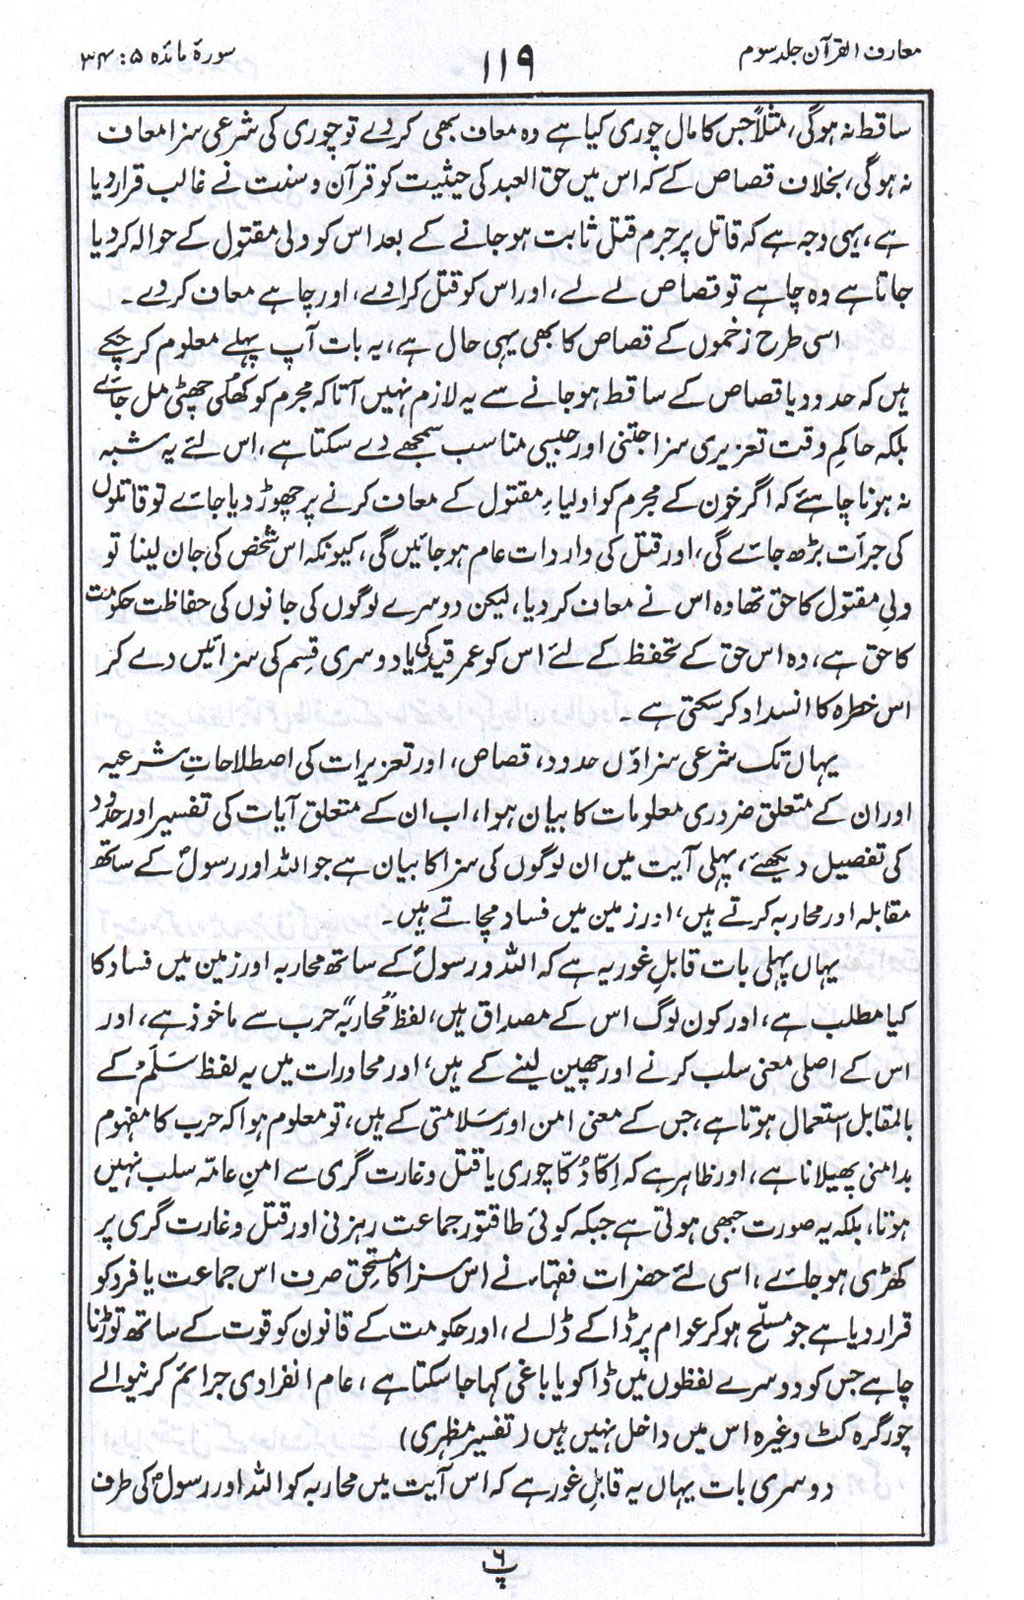 معارف القرآن جلد سوم
۱۱۹
سورۂ مائدہ ۵ : ۳۴
ساقط نہ ہوگی، مثلاً جس کا مال چوری کیا ہے وہ معاف بھی کردے تو چوری کی شرعی سزا معاف
نہ ہوگی، بخلاف قصاص کے کہ اس میں حق العبد کی حیثیت کو قرآن و سنت نے غالب قرار دیا
ہے، یہی وجہ ہے کہ قاتل پر جرم قتل ثابت ہوجانے کے بعد اس کو ولی مقتول کے حوالہ کردیا
جاتا ہے وہ چاہے تو قصاص لے لے، اور اس کو قتل کرادے، اور چاہے معاف کردے۔
اسی طرح زخموں کے قصاص کا بھی یہی حال ہے، یہ بات آپ پہلے معلوم کرچکے
ہیں کہ حدود یا قصاص کے ساقط ہوجانے سے یہ لازم نہیں آتا کہ مجرم کو کھلی چھٹی مل جائے
بلکہ حاکمِ وقت تعزیری سزا جتنی اور جیسی مناسب سمجھے دے سکتا ہے، اس لئے یہ شبہ
نہ ہونا چاہئے کہ اگر خون کے مجرم کو اولیاءِ مقتول کے معاف کرنے پر چھوڑ دیا جائے تو قاتلوں
کی جرأت بڑھ جائے گی، اور قتل کی واردات عام ہوجائیں گی، کیونکہ اس شخص کی جان لینا تو
ولیِ مقتول کا حق تھا وہ اس نے معاف کردیا، لیکن دوسرے لوگوں کی جانوں کی حفاظت حکومت
کا حق ہے، وہ اس حق کے تحفظ کے لئے اس کو عمر قید کی یا دوسری قسم کی سزائیں دے کر
اس خطرہ کا انسداد کرسکتی ہے۔
یہاں تک شرعی سزاؤں حدود، قصاص، اور تعزیرات کی اصطلاحاتِ شرعیہ
اور ان کے متعلق ضروری معلومات کا بیان ہوا، اب ان کے متعلق آیات کی تفسیر اور حدود
کی تفصیل دیکھئے، پہلی آیت میں ان لوگوں کی سزا کا بیان ہے جو اللہ اور رسولؐ کے ساتھ
مقابلہ اور محاربہ کرتے ہیں، اور زمین میں فساد مچاتے ہیں۔
یہاں پہلی بات قابلِ غور یہ ہے کہ اللہ و رسولؐ کے ساتھ محاربہ اور زمین میں فساد کا
کیا مطلب ہے، اور کون لوگ اس کے مصداق ہیں، لفظ "محاربہ" حرب سے ماخوذ ہے، اور
اس کے اصلی معنی سلب کرنے اور چھین لینے کے ہیں، اور محاورات میں یہ لفظ سَلَمٌ کے
بالمقابل استعمال ہوتا ہے، جس کے معنی امن اور سلامتی کے ہیں، تو معلوم ہوا کہ حرب کا مفہوم
بدامنی پھیلانا ہے، اور ظاہر ہے کہ اِکّا دُکّا چوری یا قتل و غارت گری سے امنِ عامہ سلب نہیں
ہوتا، بلکہ یہ صورت جبھی ہوتی ہے جبکہ کوئی طاقتور جماعت رہزنی اور قتل و غارت گری پر
کھڑی ہوجائے، اسی لئے حضرات فقہاء نے اس سزا کا مستحق صرف اس جماعت یا فرد کو
قرار دیا ہے جو مسلّح ہوکر عوام پر ڈاکے ڈالے، اور حکومت کے قانون کو قوت کے ساتھ توڑنا
چاہے جس کو دوسرے لفظوں میں ڈاکو یا باغی کہا جاسکتا ہے، عام انفرادی جرائم کرنیوالے
چور گرہ کٹ وغیرہ اس میں داخل نہیں ہیں (تفسیر مظہری)
دوسری بات یہاں یہ قابلِ غور ہے کہ اس آیت میں محاربہ کو اللہ اور رسولؐ کی طرف
پ ۶